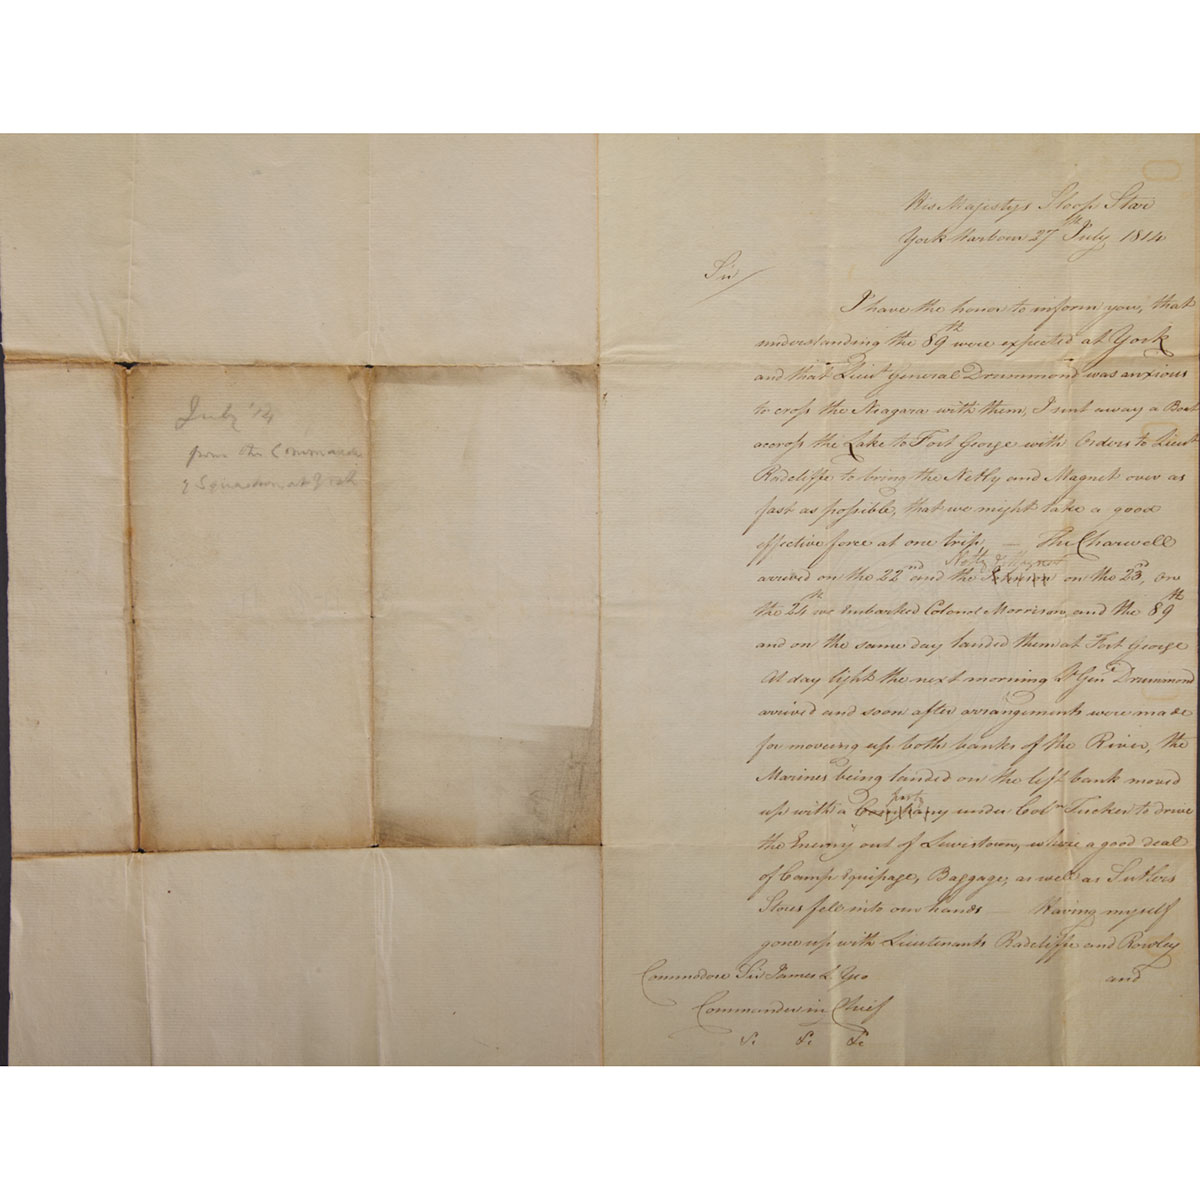 July '14
from the Commander
of Squadron at York
His Majestys Sloop Star
York Harbour 27th July 1814
Sir
I have the honor to inform you, that
understanding the 89th were expected at York
and that Lieut General Drummond was anxious
to cross the Niagara with them, I sent away a Boat
across the Lake to Fort George with Orders to Lieut
Radcliffe to bring the Netly and Magnet over as
fast as possible, that we might take a good
effective force at one trip, — The Charwell
Netly & Magnet
arrived on the 22nd and the on the 23d, On
the 24th we Embarked Colonel Morrison, and the 89th
and on the same day landed them at Fort George
At day light the next morning Lt Genl Drummond
arrived and soon after arrangements were made
for moveing up both banks of the River, the
Marines being landed on the left bank moved
party
up with a Company under Coln Tucker to drive
the Enemy out of Lewistown, where a good deal
of Camp Equipage, Baggage, as well as Sutlers
Stores fell into our hands — Having myself
gone up with Lieutenants Radcliffe and Rowley
and
Commodore Sir James L Yeo
Commander in Chief